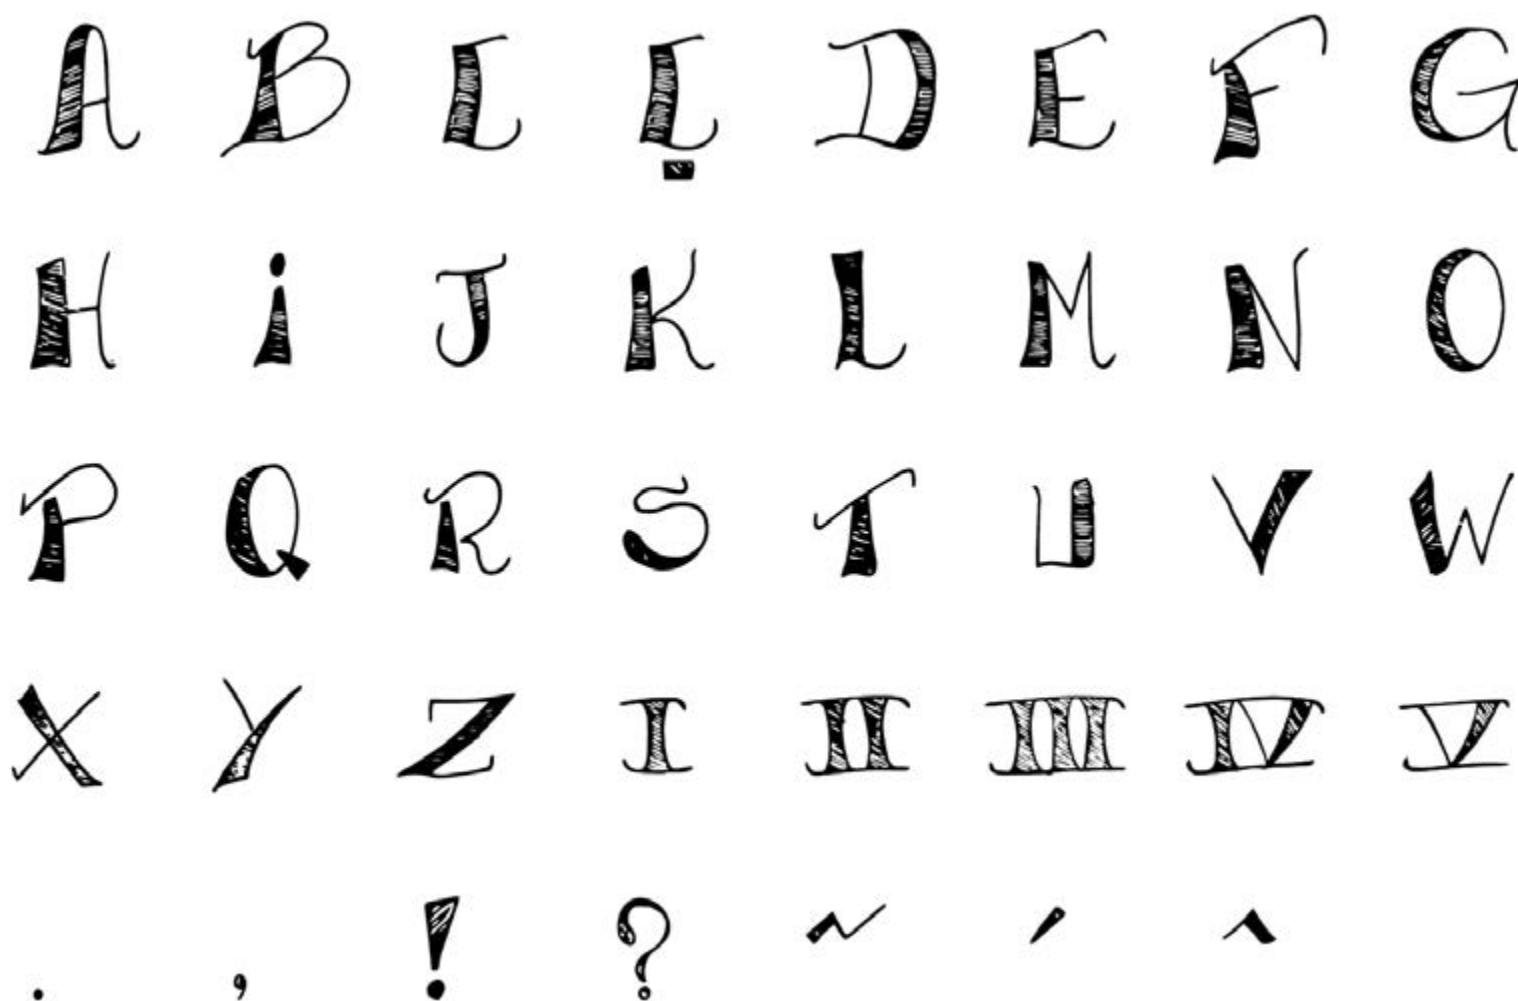 A B C Ç D E F G
H i J K L M N O
P Q R S T U V W
X Y Z I II III IV V
. , ! ? ~ ´ ^